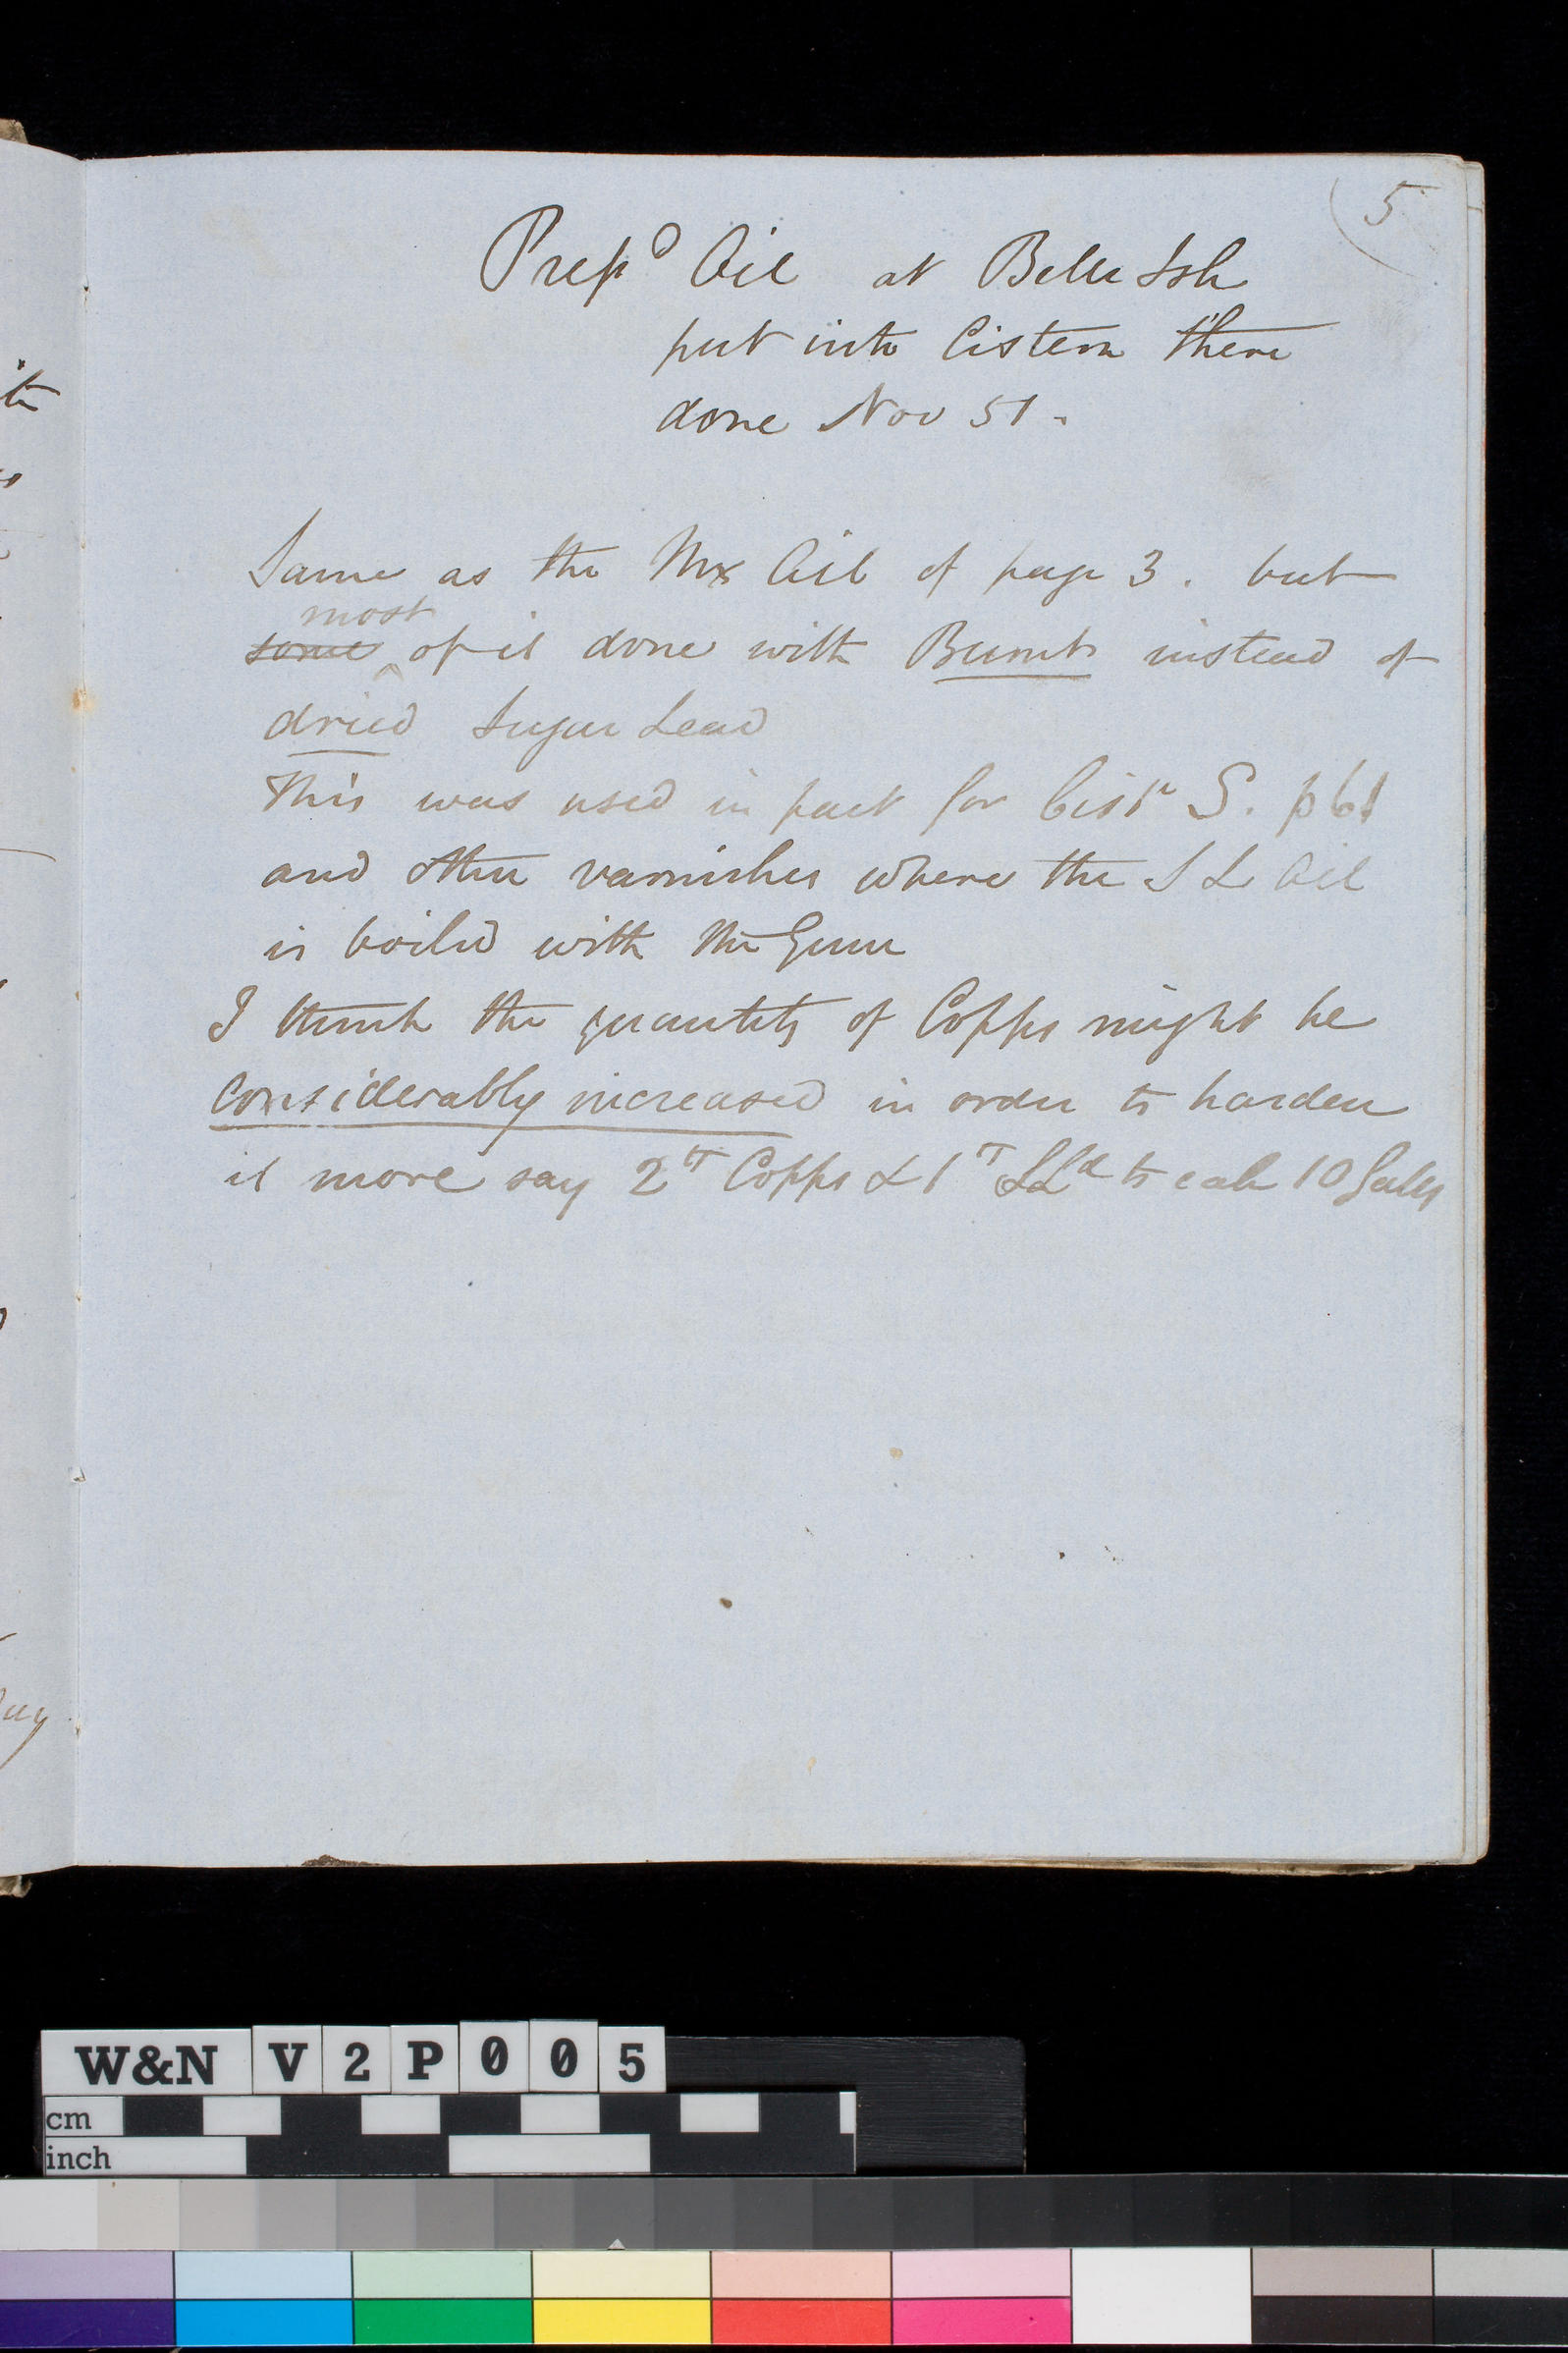 5
Prepd Oil at Belle Ish
put into Cistern there
done Nov 51.
Same as the Mx Oil of page 3. but
most
some of it done with Burnt instead of
dried Sugar Lead
This was used in part for Cisrn S. p 61
and other varnishes where the S L Oil
is boiled with the Gum
I think the quantity of Copps might be
considerably increased in order to harden
it more say 2 T Copps & 1 T SLd to each 10 Galls
W&N V2P005
cm
inch